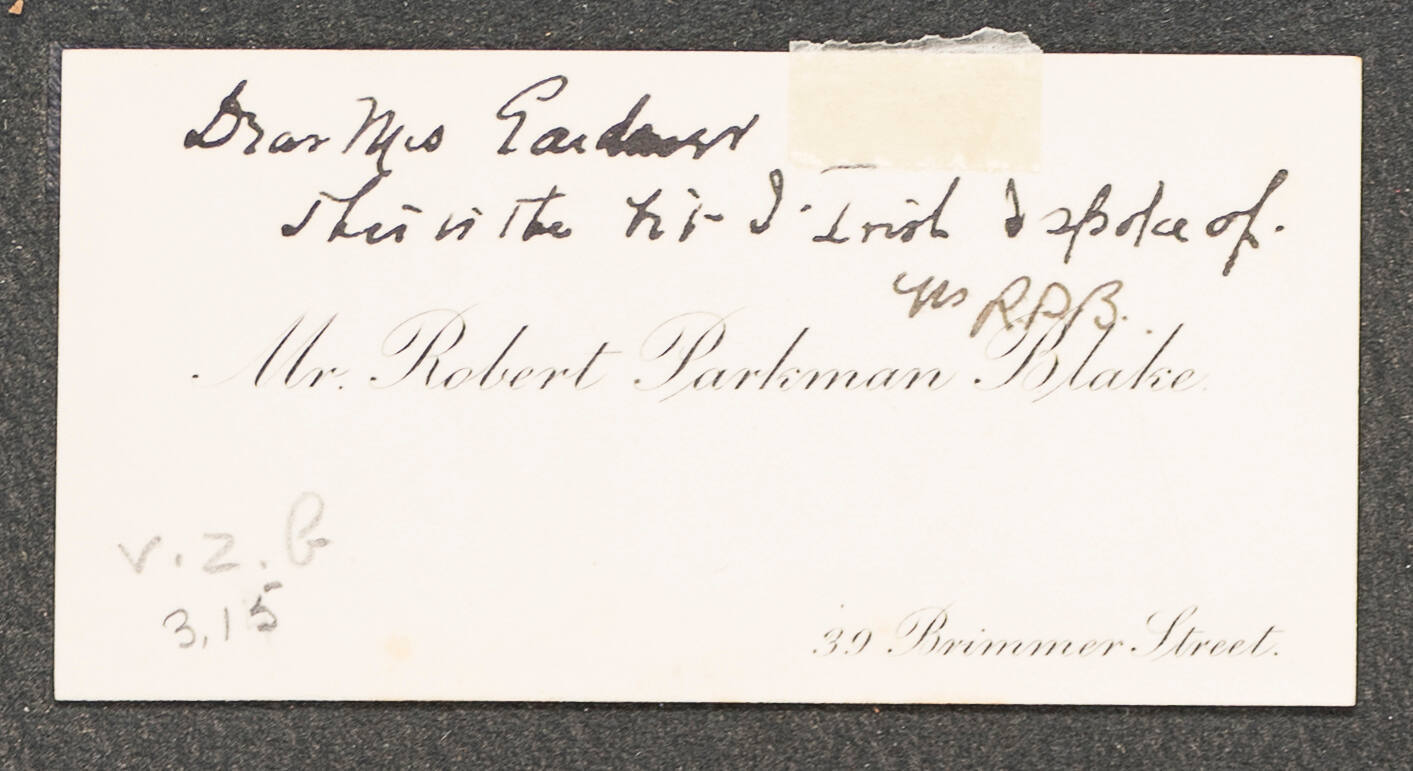 Dear Mrs Gardner
This is the bit of Irish I spoke of.
Yrs R.P.B.
Mr. Robert Parkman Blake
V. Z. b
3.15
39 Brimmer Street.